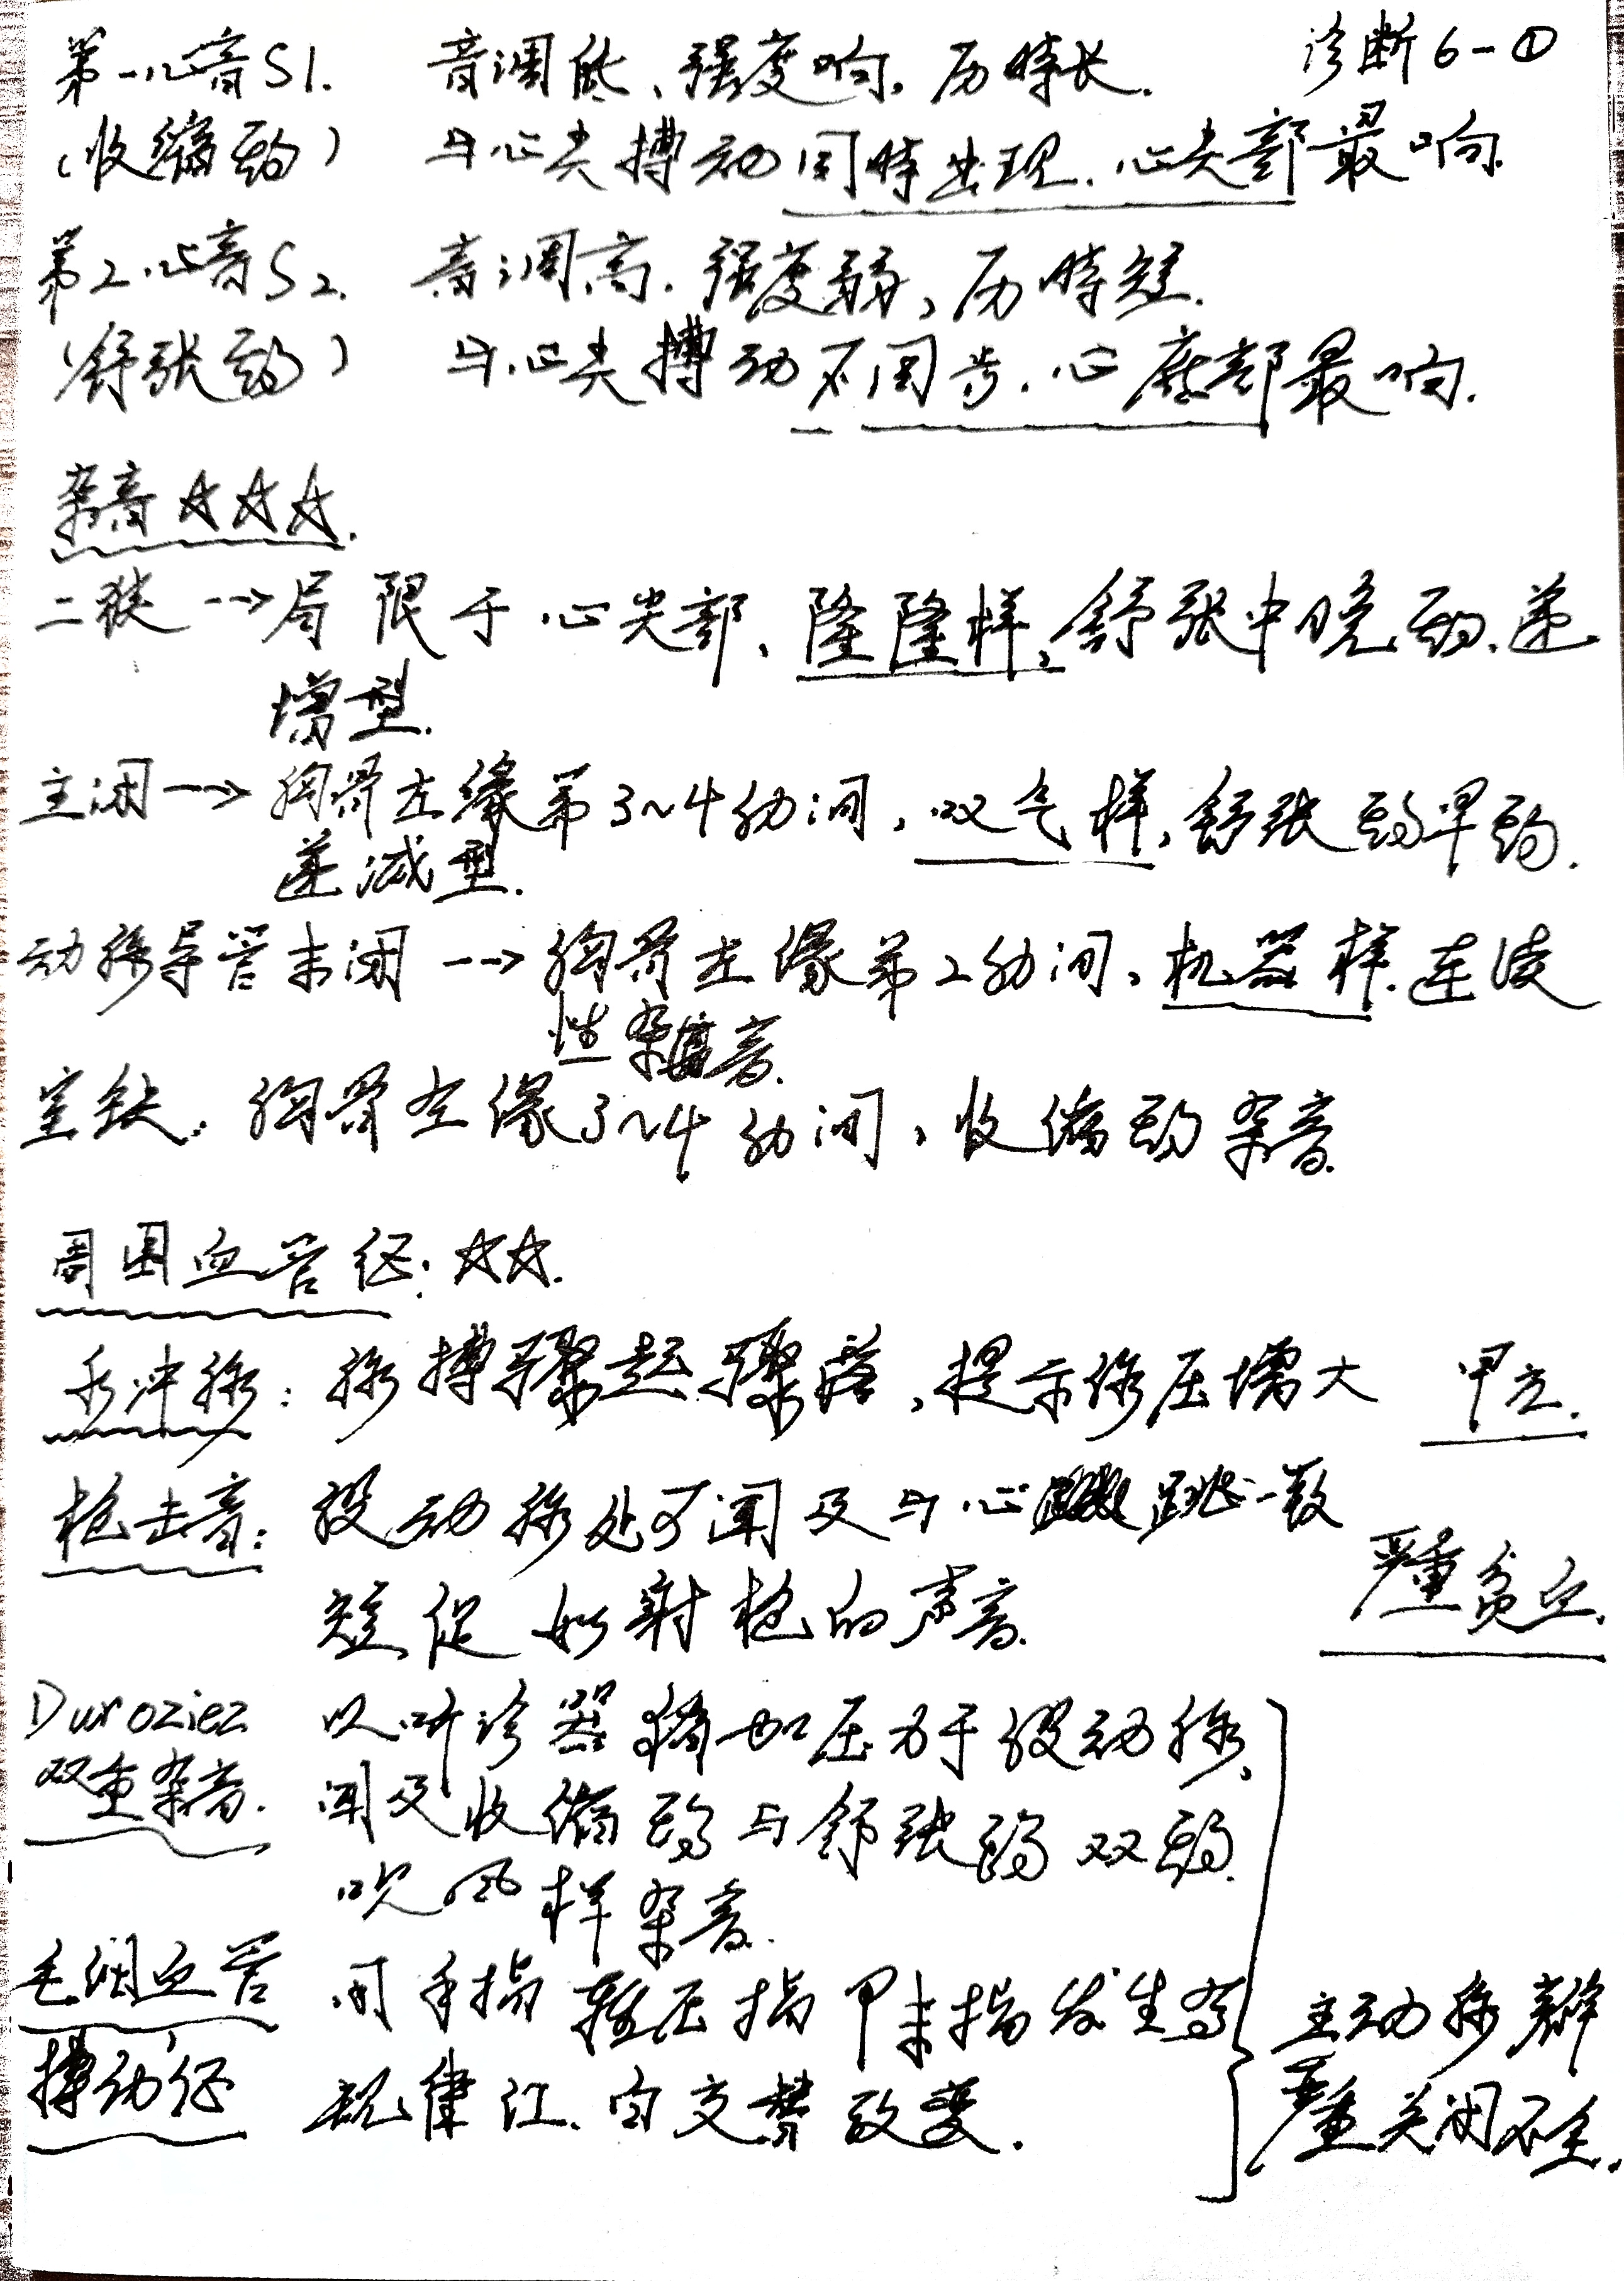 诊断6-①
第一心音S1. 音调低、强度响.历时长.
(收缩期) 与心尖搏动同时出现.心尖部最响.
第2心音S2. 音调高.强度弱、历时短.
(舒张期) 与心尖搏动不同步.心底部最响.
杂音☆☆☆.
二狭-→局限于心尖部、隆隆样、舒张中晚期.递
增型.
主闭-→胸骨左缘第3~4肋间,叹气样,舒张期早期.
递减型.
动脉导管未闭-→胸骨左缘第2肋间、机器样.连续
性杂音.
室缺:胸骨左缘3~4肋间,收缩期杂音.
周围血管征:☆☆.
水冲脉:脉搏骤起骤落,提示脉压增大 甲亢.
枪击音:股动脉处可闻及与心跳一致
短促如射枪的声音. 严重贫血.
Duroziez 以听诊器稍加压力于股动脉、
双重杂音. 闻及收缩期与舒张期双期
吹风样杂音.
毛细血管 用手指轻压指甲末指发生有
搏动征 规律红.白交替改变.
主动脉瓣
严重关闭不全.